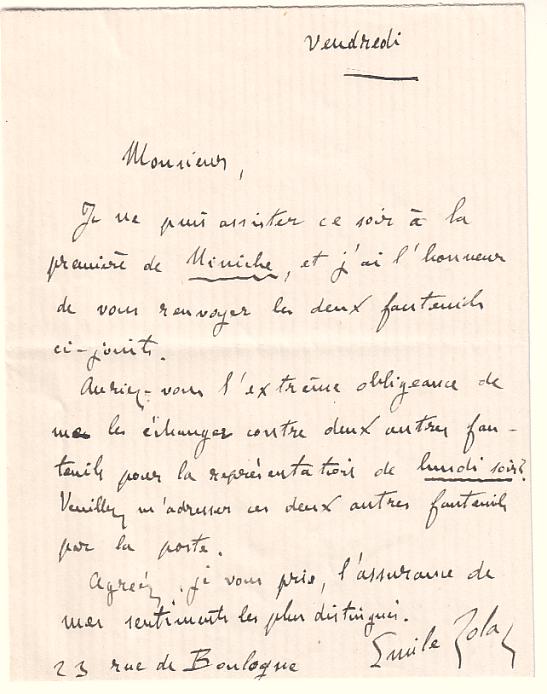 Vendredi
Monsieur,
Je ne puis assister ce soir à la
première de Niniche, et j'ai l'honneur
de vous renvoyer les deux fauteuils
ci-joints.
Auriez-vous l'extrême obligeance de
me les échanger contre deux autres fau-
teuils pour la représentation de lundi soir?
Veuillez m'adresser ces deux autres fauteuils
par la poste.
Agréez, je vous prie, l'assurance de
mes sentiments les plus distingués.
Emile Zola
23 rue de Boulogne